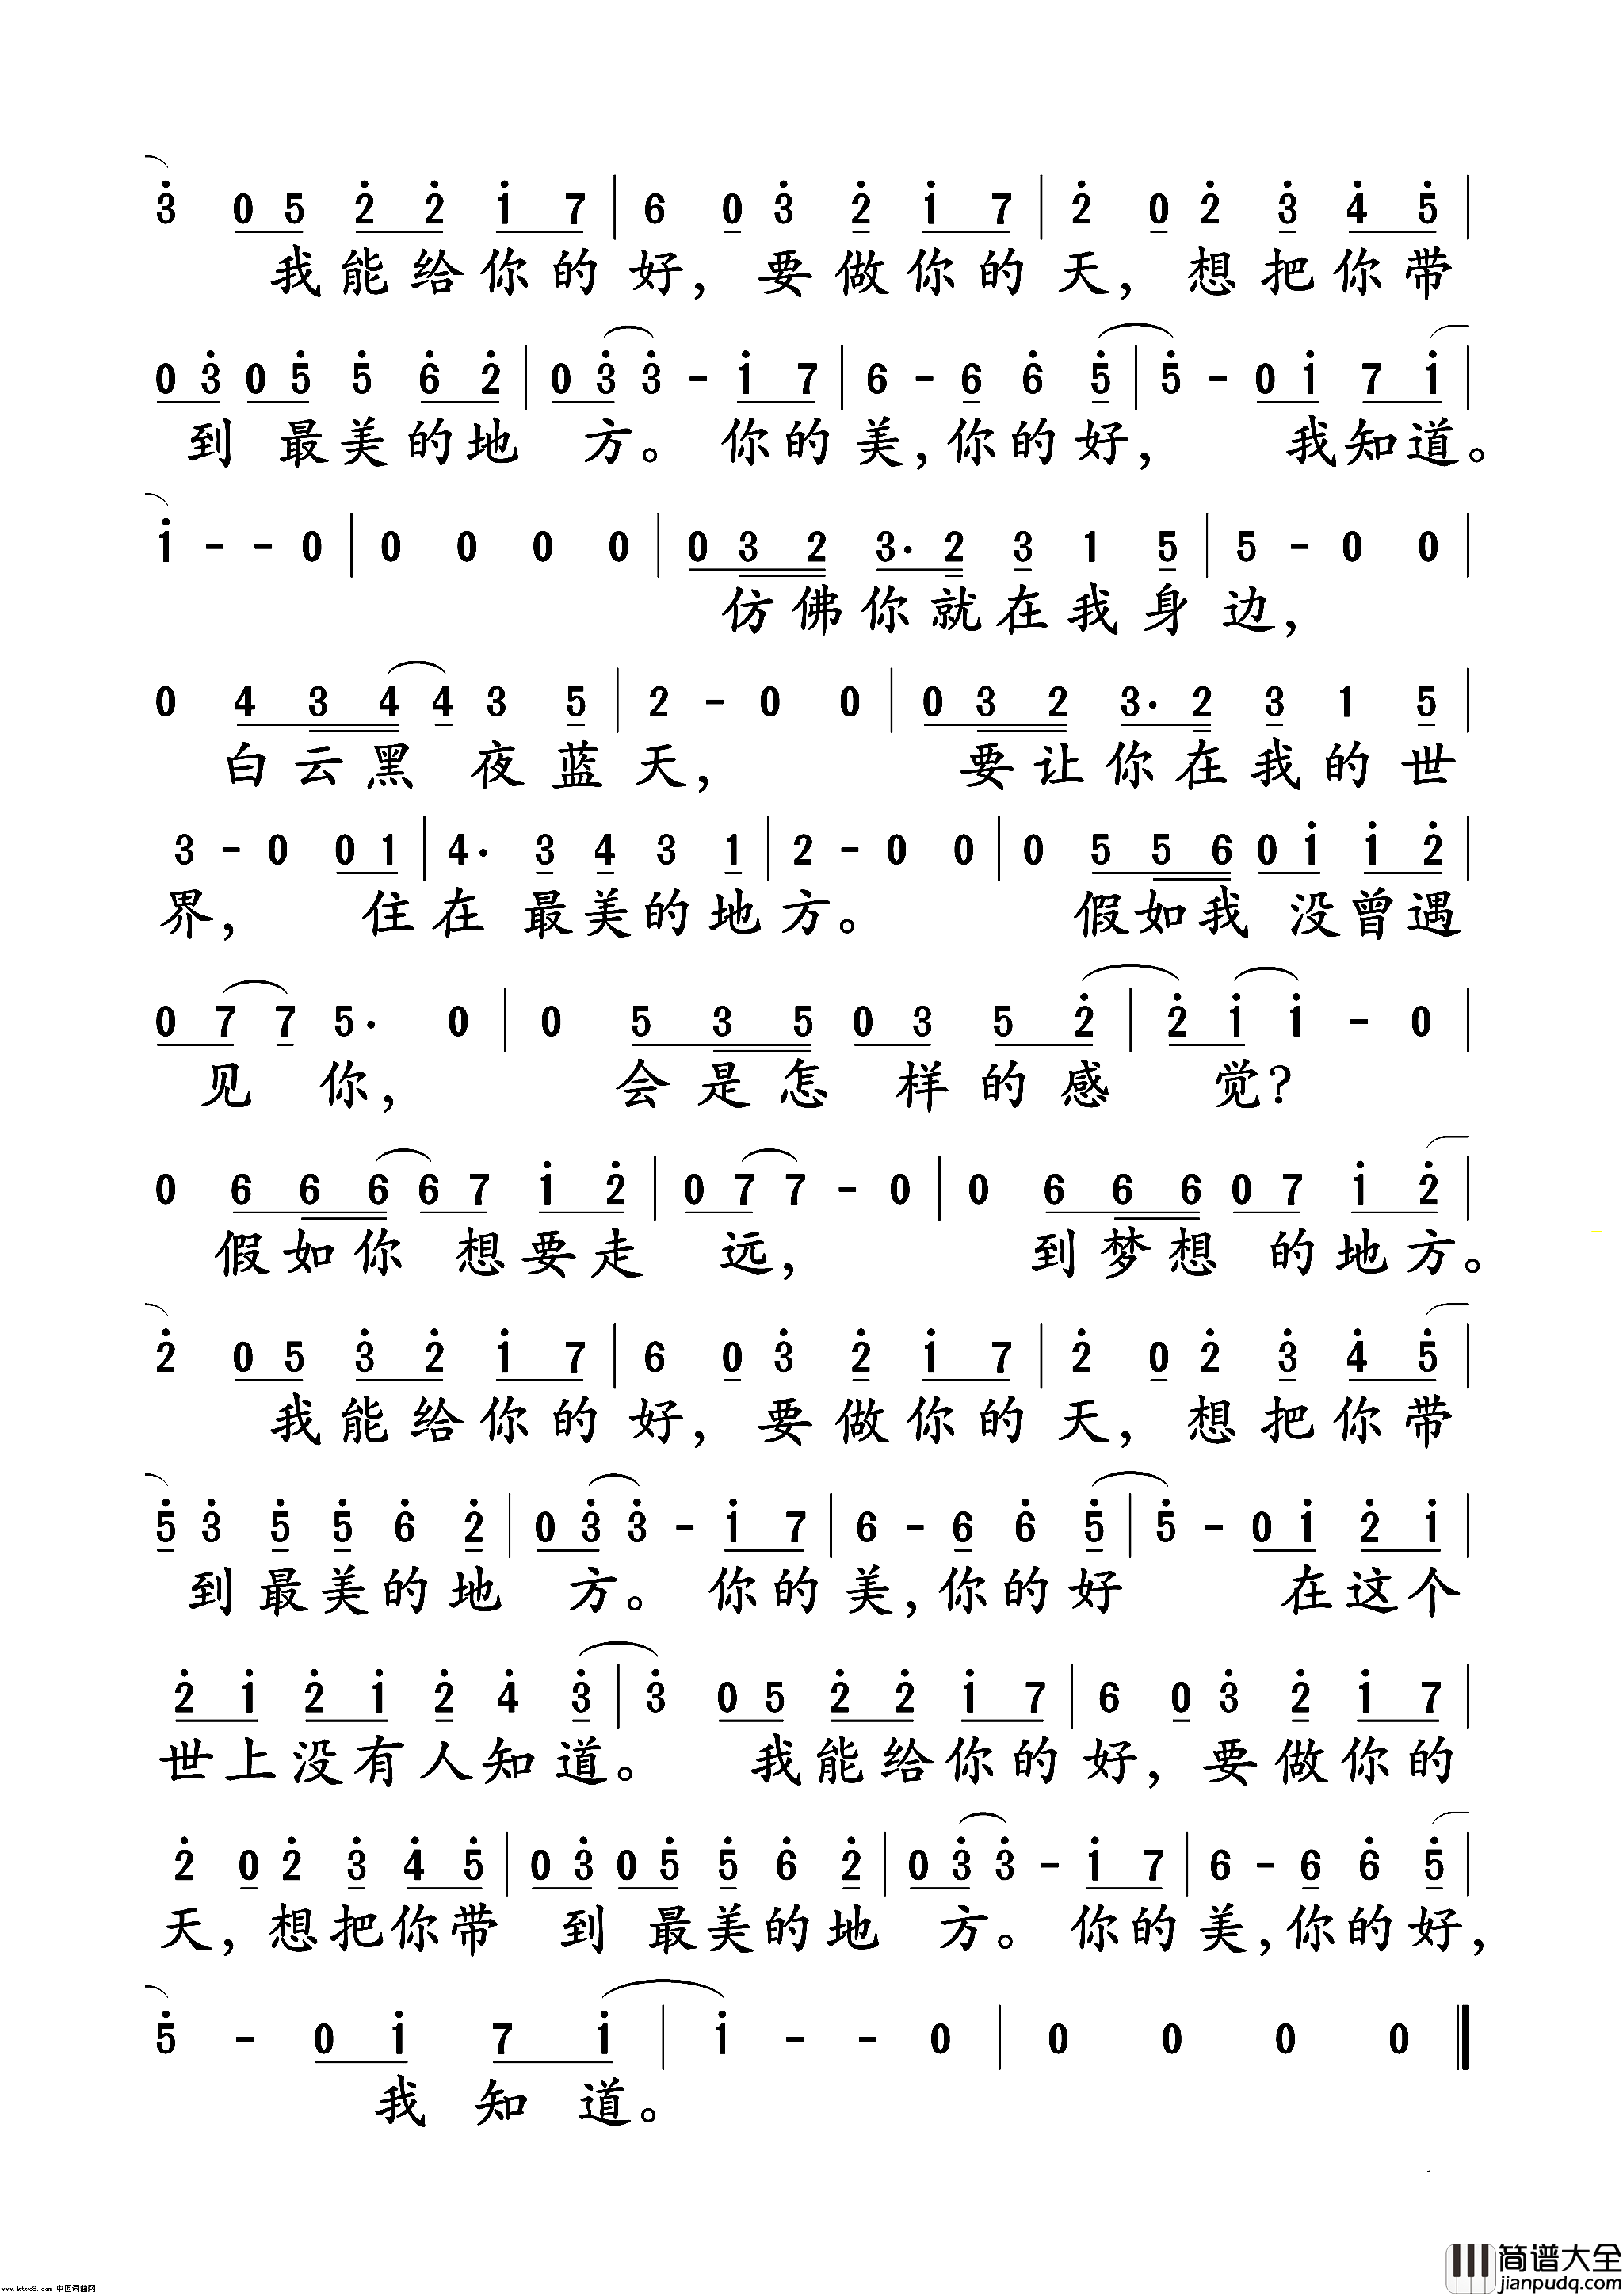 3 0 5 2 2 1 7 | 6 0 3 2 1 7 | 2 0 2 3 4 5 |
我能给你的好，要做你的天，想把你带
0 3 0 5 5 6 2 | 0 3 3 - 1 7 | 6 - 6 6 5 | 5 - 0 1 7 1 |
到 最美的地 方。你的美，你的好， 我知道。
1 - - 0 | 0 0 0 0 | 0 3 2 3· 2 3 1 5 | 5 - 0 0 |
仿佛你就在我身边，
0 4 3 4 4 3 5 | 2 - 0 0 | 0 3 2 3· 2 3 1 5 |
白云黑 夜蓝天， 要让你在我的世
3 - 0 0 1 | 4· 3 4 3 1 | 2 - 0 0 | 0 5 5 6 0 1 1 2 |
界， 住在最美的地方。 假如我 没曾遇
0 7 7 5· 0 | 0 5 3 5 0 3 5 2 | 2 1 1 - 0 |
见 你， 会是怎 样的感 觉?
0 6 6 6 6 7 1 2 | 0 7 7 - 0 | 0 6 6 6 0 7 1 2 |
假如你 想要走 远， 到梦想 的地方。
2 0 5 3 2 1 7 | 6 0 3 2 1 7 | 2 0 2 3 4 5 |
我能给你的好，要做你的天，想把你带
5 3 5 5 6 2 | 0 3 3 - 1 7 | 6 - 6 6 5 | 5 - 0 1 2 1 |
到最美的地 方。你的美，你的好 在这个
2 1 2 1 2 4 3 | 3 0 5 2 2 1 7 | 6 0 3 2 1 7 |
世上没有人知道。 我能给你的好，要做你的
2 0 2 3 4 5 | 0 3 0 5 5 6 2 | 0 3 3 - 1 7 | 6 - 6 6 5 |
天，想把你带 到 最美的地 方。你的美，你的好，
5 - 0 1 7 1 | 1 - - 0 | 0 0 0 0 ‖
我 知 道。
简谱大全
jianpudq.com
www.ktvc8.com 中国词曲网